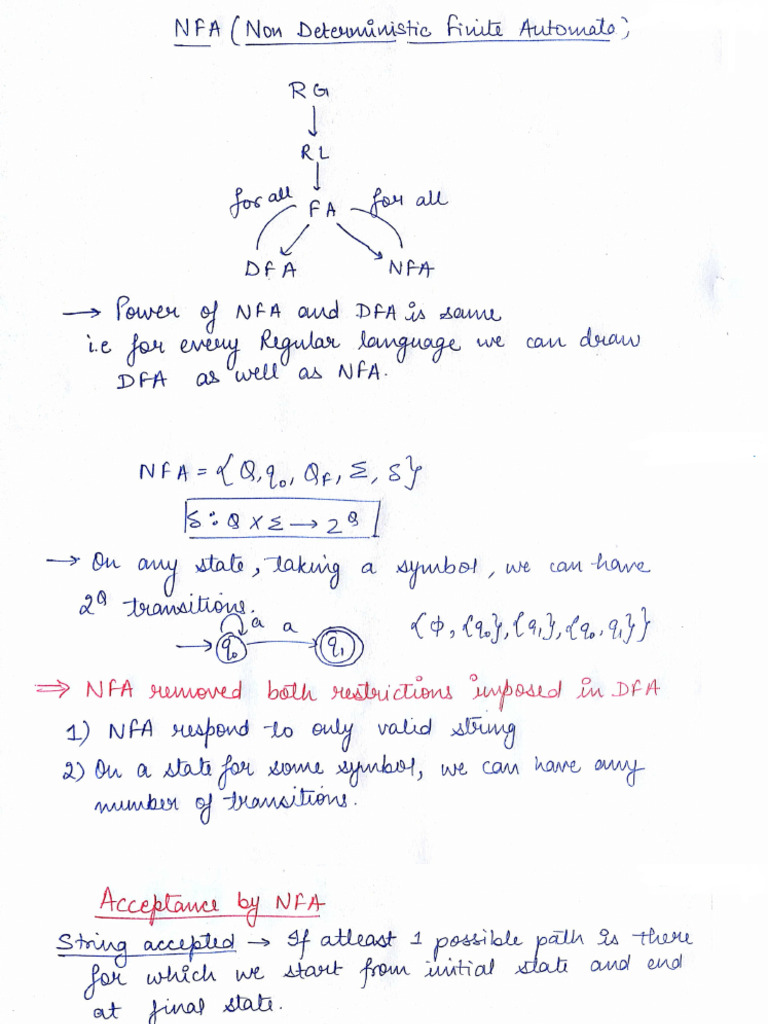 NFA (Non Deterministic Finite Automata)
RG
RL
for all FA for all
DFA NFA
→ Power of NFA and DFA is same
i.e for every Regular language we can draw
DFA as well as NFA.
NFA = {Q, q₀, Q_F, Σ, δ}
δ : Q × Σ → 2^Q
→ On any state, taking a symbol, we can have
2^Q transitions.
a a {ϕ, {q₀}, {q₁}, {q₀, q₁}}
q₀ q₁
⇒ NFA removed both restrictions imposed in DFA
1) NFA respond to only valid string
2) On a state for some symbol, we can have any
number of transitions.
Acceptance by NFA
String accepted → If atleast 1 possible path is there
for which we start from initial state and end
at final state.